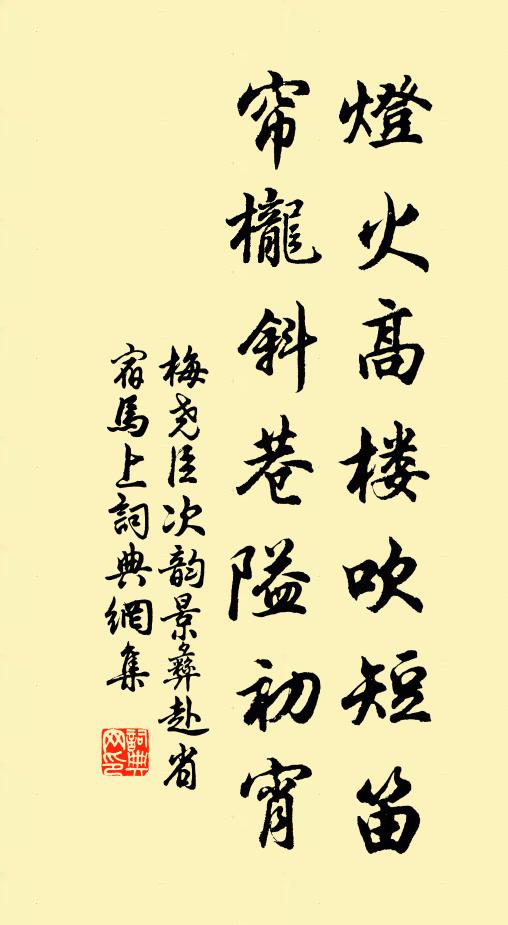 燈火高楼吹短笛
帘櫳斜巷隘初宵
梅尧臣次韵景彝赴省
宿馬上詞典網集
詞典
网印